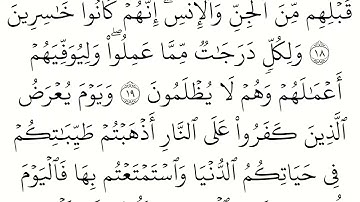 قَبْلِهِم مِّنَ ٱلْجِنِّ وَٱلْإِنسِ ۖ إِنَّهُمْ كَانُوا۟ خَـٰسِرِينَ
١٨ وَلِكُلٍّ دَرَجَـٰتٌ مِّمَّا عَمِلُوا۟ ۖ وَلِيُوَفِّيَهُمْ
أَعْمَـٰلَهُمْ وَهُمْ لَا يُظْلَمُونَ ١٩ وَيَوْمَ يُعْرَضُ
ٱلَّذِينَ كَفَرُوا۟ عَلَى ٱلنَّارِ أَذْهَبْتُمْ طَيِّبَـٰتِكُمْ
فِى حَيَاتِكُمُ ٱلدُّنْيَا وَٱسْتَمْتَعْتُم بِهَا فَٱلْيَوْمَ